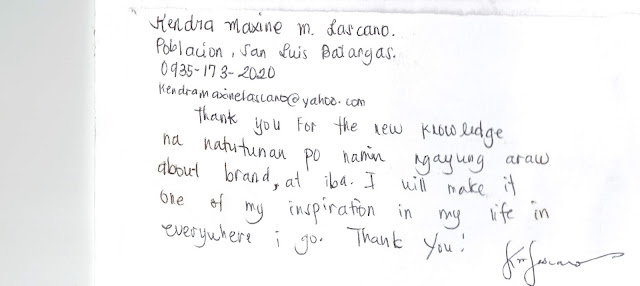 Kendra Maxine M. Lascano.
Poblacion, San Luis Batangas.
0935-173-2020
kendramaxinelascano@yahoo.com
Thank you for the new knowledge
na natutunan po namin ngayung araw
about brand, at iba. I will make it
one of my inspiration in my life in
everywhere i go. Thank you!